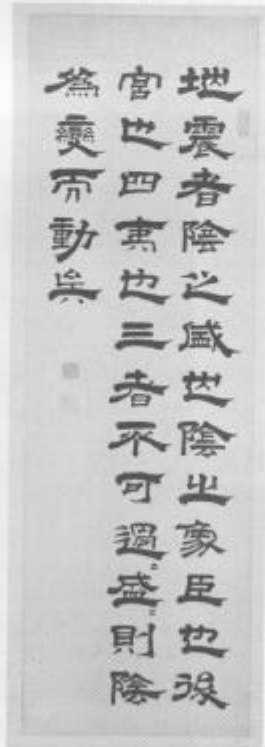 地震者陰之盛也陰之象臣也後
宮也四夷也三者不可過〻盛〻則陰
為變而動矣